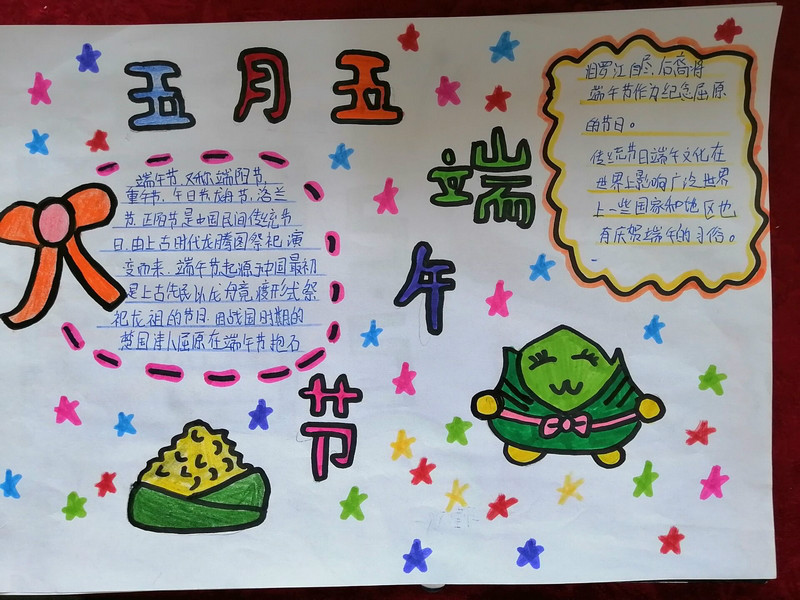 五月五
端
午
节
端午节,又称端阳节,
重午节,午日节,龙舟节,浴兰
节,正阳节是中国民间传统节
日.由上古时代龙腾图祭祀演
变而来.端午节起源于中国最初
是上古先民以龙舟竞渡形式祭
祀龙祖的节日.因战国时期的
楚国诗人屈原在端午节抱石
汨罗江自尽,后裔将
端午节作为纪念屈原
的节日。
传统节日端午文化在
世界上影响广泛世界
上一些国家和地区也
有庆贺端午的习俗。